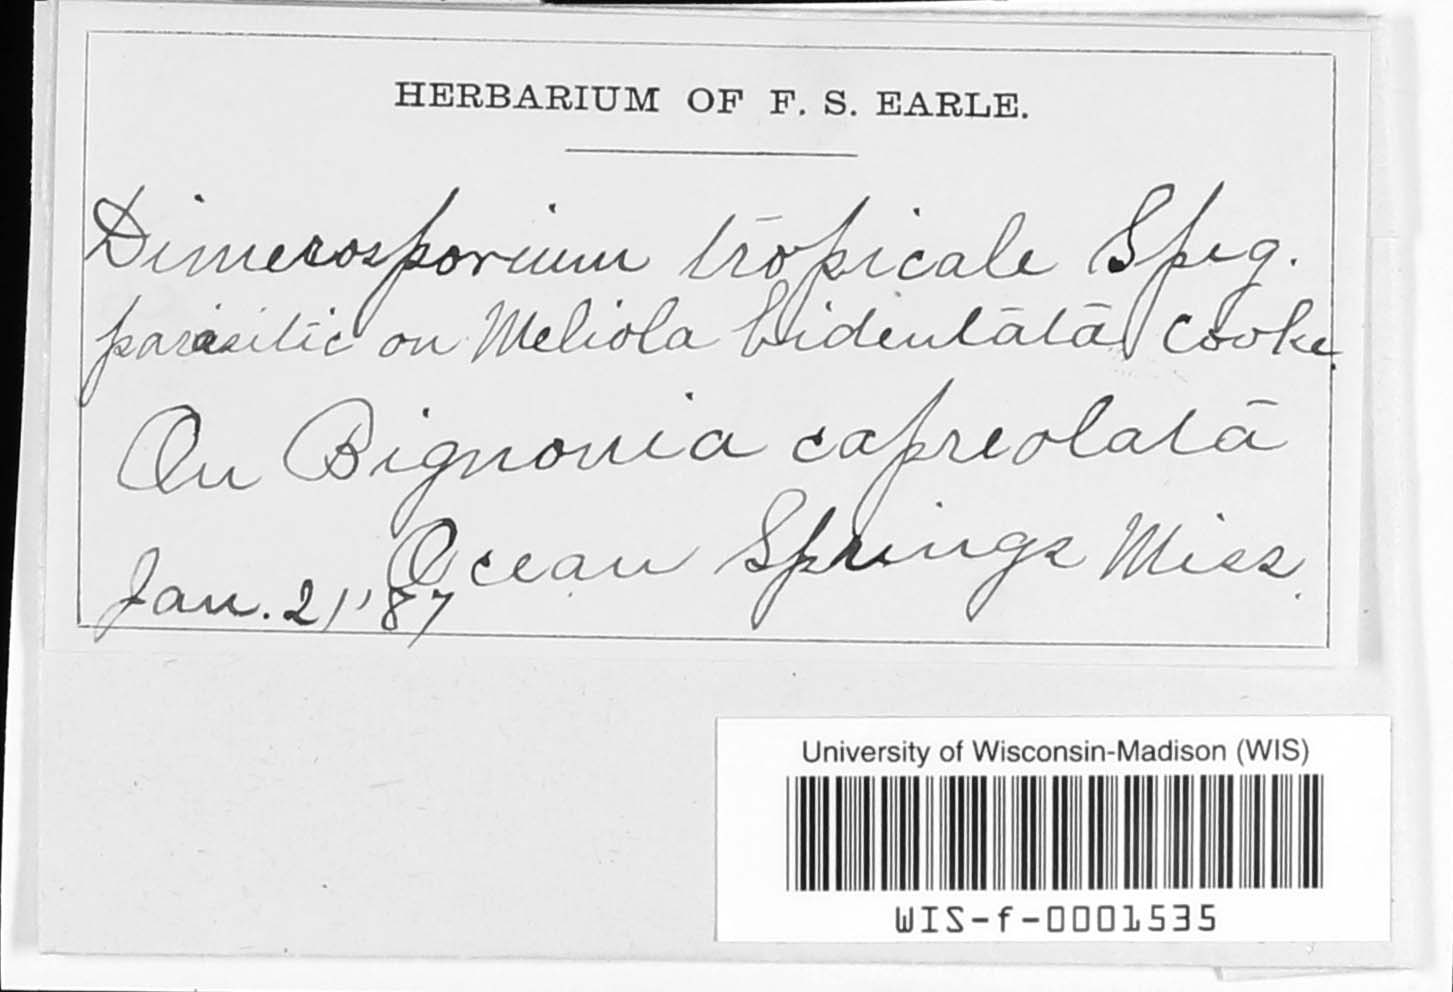 HERBARIUM OF F. S. EARLE.
Dimerosporium tropicale Speg.
parasitic on Meliola bidentata Cooke.
On Bignonia capreolata
Ocean Springs Miss.
Jan. 21, '87
University of Wisconsin-Madison (WIS)
WIS-f-0001535